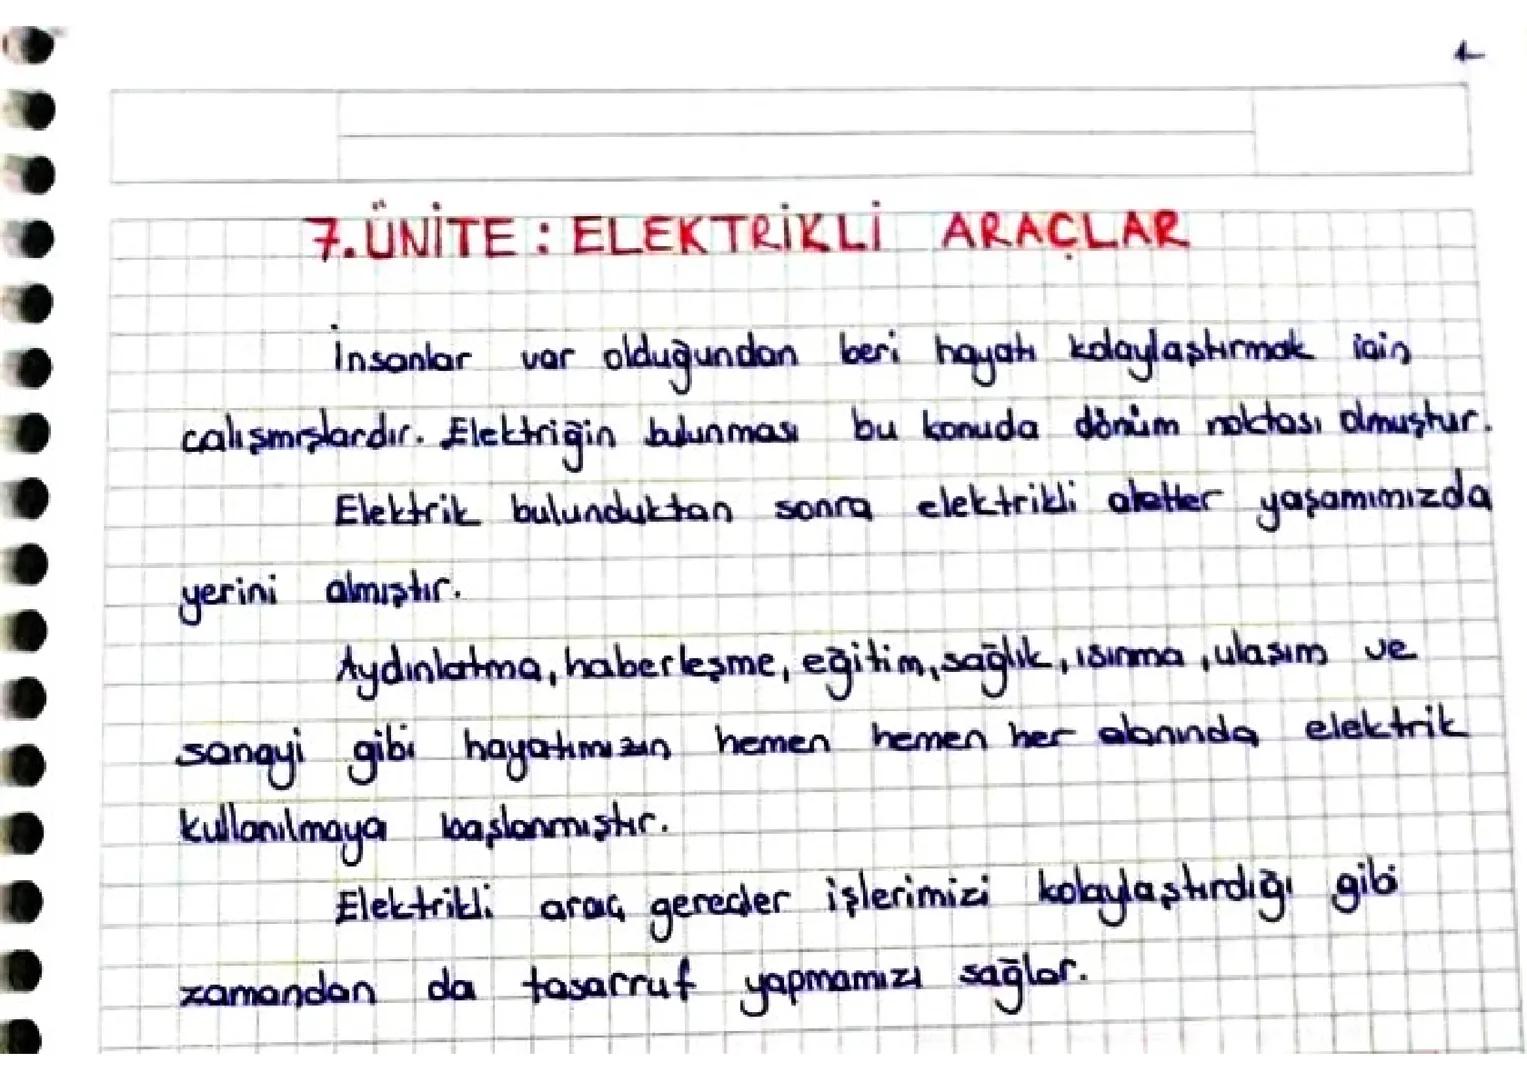 1
7.ÜNİTE : ELEKTRİKLİ ARAÇLAR
İnsanlar var olduğundan beri hayatı kolaylaştırmak için
çalışmışlardır. Elektriğin bulunması bu konuda dönüm noktası olmuştur.
Elektrik bulunduktan sonra elektrikli aletler yaşamımızda
yerini almıştır.
Aydınlatma, haberleşme, eğitim, sağlık, ısınma, ulaşım ve
sanayi gibi hayatımızın hemen hemen her alanında elektrik
kullanılmaya başlanmıştır.
Elektrikli araç gereçler işlerimizi kolaylaştırdığı gibi
zamandan da tasarruf yapmamızı sağlar.